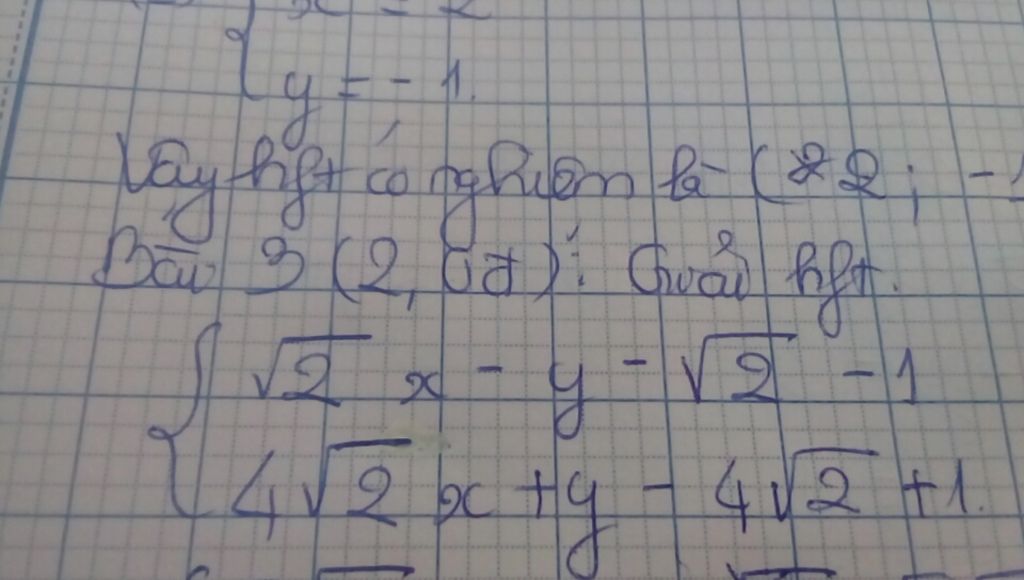 x = 2
y = - 1.
Vậy hpt có nghiệm là (2; -1
Bài 3 (2,0đ): Giải hpt.
√2 x - y - √2 - 1
4√2 x + y - 4√2 + 1.